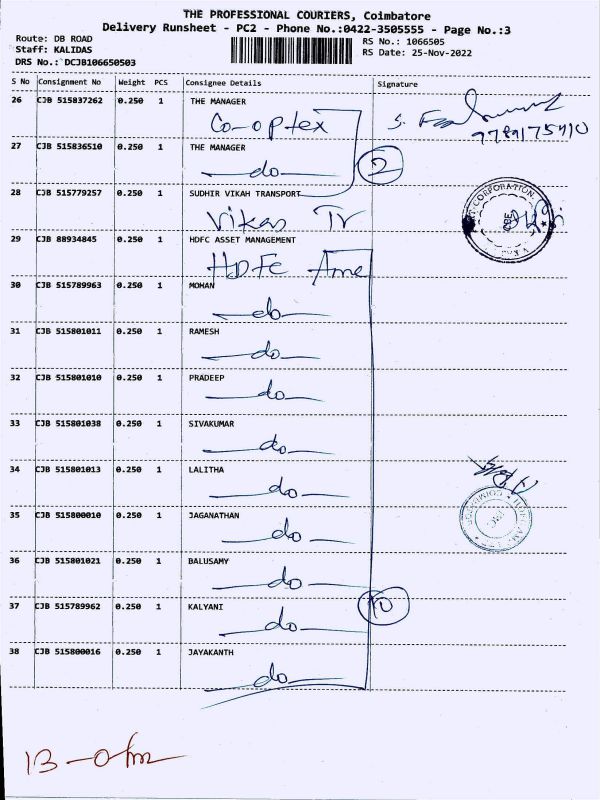 THE PROFESSIONAL COURIERS, Coimbatore
Delivery Runsheet - PC2 - Phone No.:0422-3505555 - Page No.:3
Route: DB ROAD
RS No.: 1066505
Staff: KALIDAS
RS Date: 25-Nov-2022
DRS No.: DCJB106650503
S No Consignment No Weight PCS Consignee Details Signature
26 CJB 515837262 0.250 1 THE MANAGER
Co-optex
27 CJB 515836510 0.250 1 THE MANAGER
do 2
28 CJB 515779257 0.250 1 SUDHIR VIKAH TRANSPORT
Vikas Tr
29 CJB 88934845 0.250 1 HDFC ASSET MANAGEMENT
HDFC Ame
30 CJB 515789963 0.250 1 MOHAN
do
31 CJB 515801011 0.250 1 RAMESH
do
32 CJB 515801010 0.250 1 PRADEEP
do
33 CJB 515801038 0.250 1 SIVAKUMAR
do
34 CJB 515801013 0.250 1 LALITHA
do
35 CJB 515800010 0.250 1 JAGANATHAN
do
36 CJB 515801021 0.250 1 BALUSAMY
do
37 CJB 515789962 0.250 1 KALYANI
do 10
38 CJB 515800016 0.250 1 JAYAKANTH
do